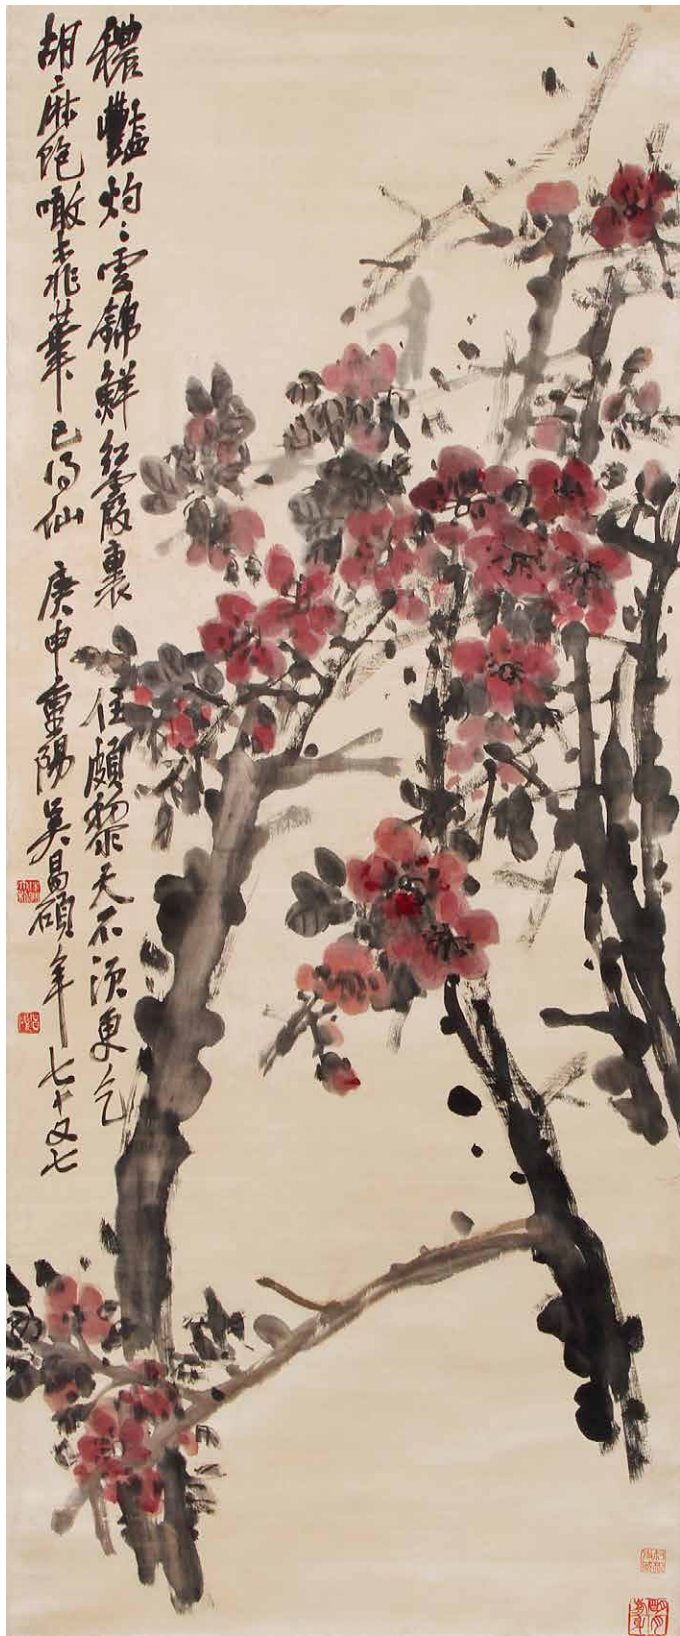 穠豔灼〻雲錦鮮紅霞裹住頗黎天不須更乞
胡麻飽噉桃華已得仙 庚申重陽吳昌碩年七十又七